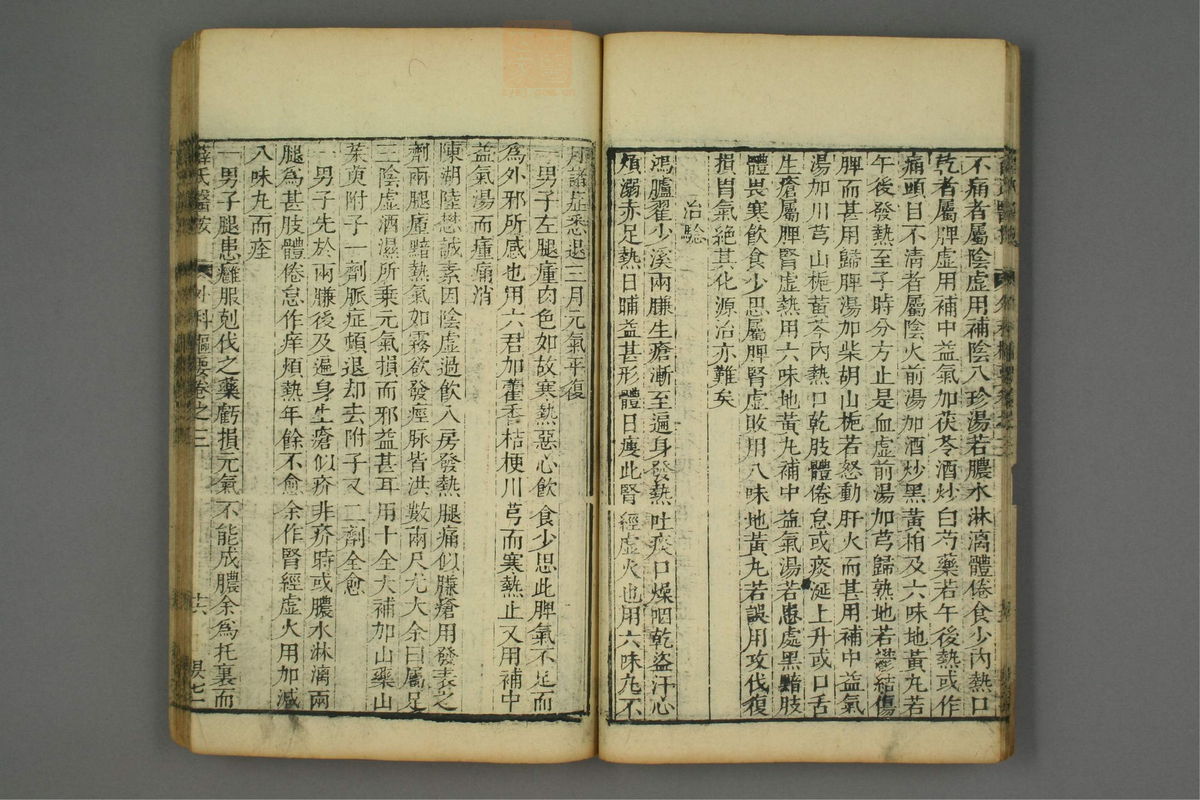 不痛者屬陰虛用補陰八珍湯若膿水淋漓體倦食少內熱口
乾者屬脾虛用補中益氣加茯苓酒炒白芍藥若午後熱或作
痛頭目不清者屬陰火前湯加酒炒黑黃栢及六味地黃丸若
午後發熱至子時分方止是血虛前湯加芎歸熟地若鬱結傷
脾而甚用歸脾湯加柴胡山梔若怒動肝火而甚用補中益氣
湯加川芎山梔黃芩內熱口乾肢體倦怠或痰涎上升或口舌
生瘡屬脾腎虛熱用六味地黃丸補中益氣湯若患處黑黯肢
體畏寒飲食少思屬脾腎虛敗用八味地黃丸若誤用攻伐復
損胃氣絕其化源治亦難矣
治驗
鴻臚翟少溪兩臁生瘡漸至遍身發熱吐痰口燥咽乾盜汗心
煩溺赤足熱日晡益甚形體日瘦此腎經虛火也用六味丸不
月諸症悉退三月元氣平復
一男子左腿瘇肉色如故寒熱惡心飲食少思此脾氣不足而
為外邪所感也用六君加藿香桔梗川芎而寒熱止又用補中
益氣湯而瘇痛消
陳湖陸懋誠素因陰虛過飲入房發熱腿痛似臁瘡用發表之
劑兩腿瘇黯熱氣如霧欲發痙脉皆洪數兩尺尤大余曰屬足
三陰虛酒濕所乘元氣損而邪益甚耳用十全大補加山藥山
茱萸附子一劑脈症頓退却去附子又二劑全愈
一男子先於兩臁後及遍身生瘡似疥非疥時或膿水淋漓兩
腿為甚肢體倦怠作痒煩熱年餘不愈余作腎經虛火用加減
八味丸而痊
一男子腿患癰服剋伐之藥虧損元氣不能成膿余為托裏而
薛氏醫按 外科樞要卷之三 廿六